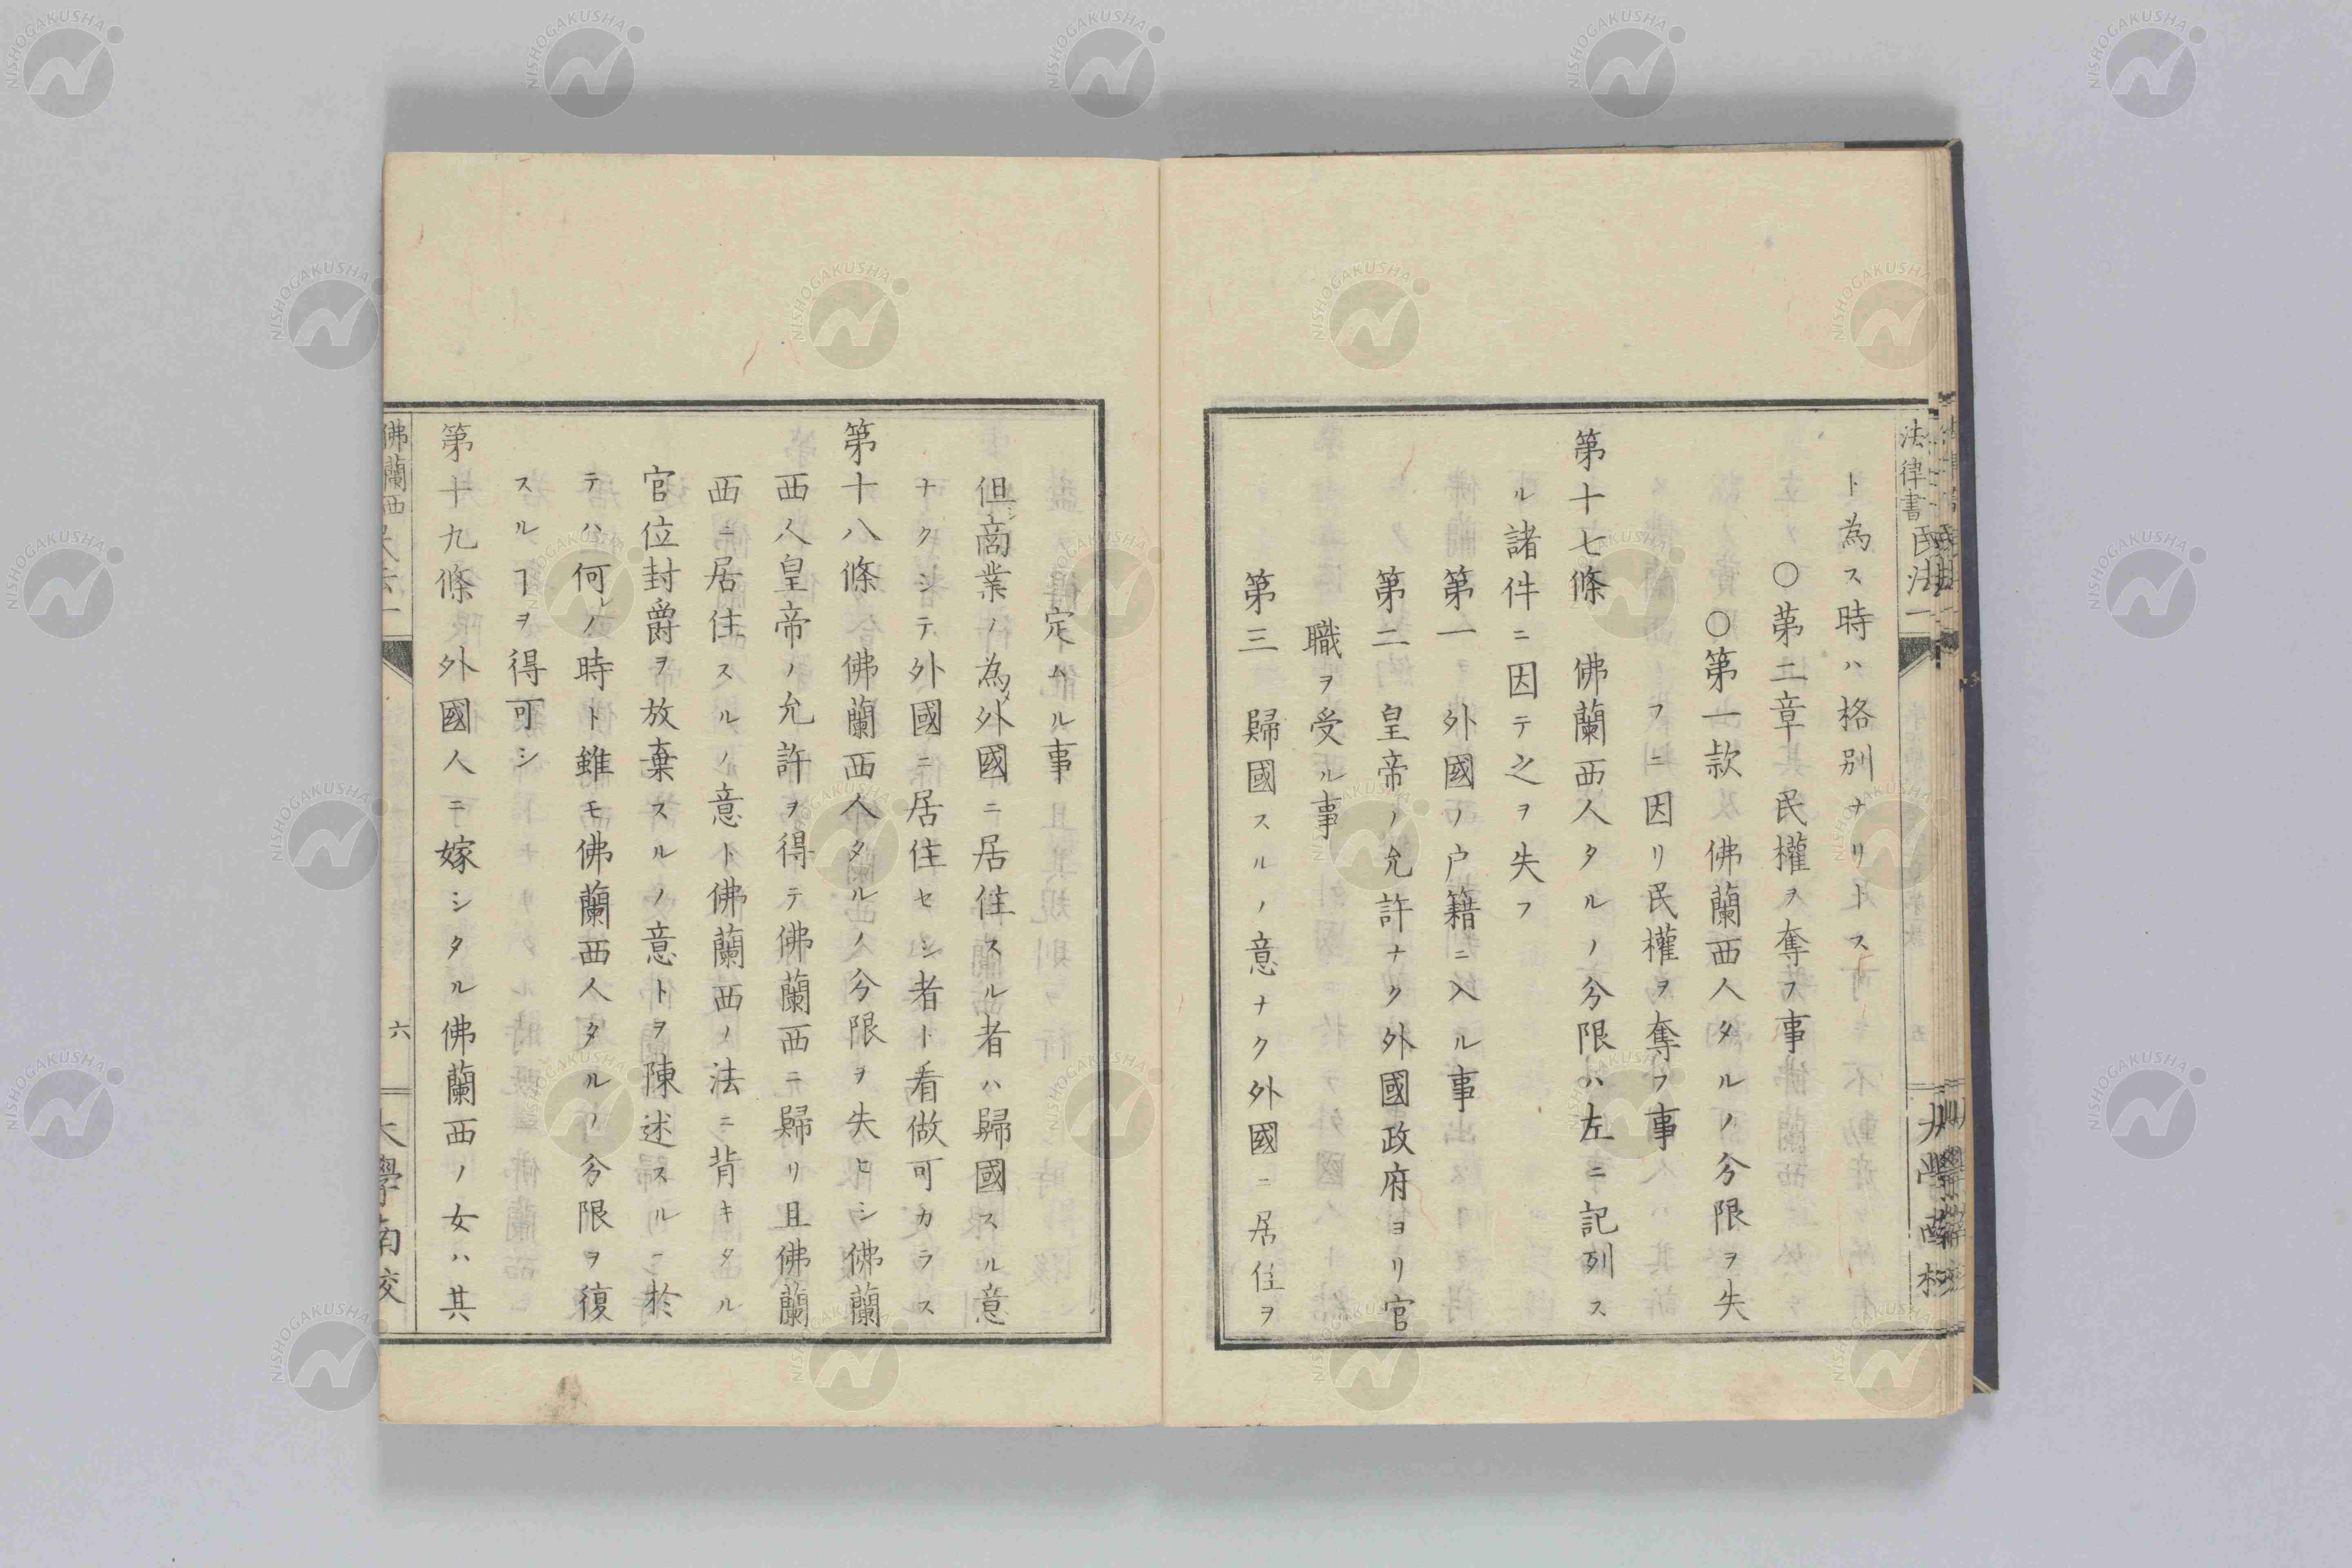 ト為ス時ハ格別ナリトス
○第二章民權ヲ奪フ事
○第一款佛蘭西人タルノ分限ヲ失
フニ因リ民權ヲ奪フ事
第十七條 佛蘭西人タルノ分限ハ左ニ記列ス
ル諸件ニ因テ之ヲ失フ
第一 外國ノ户籍ニ入ル事
第二 皇帝ノ允許ナク外國政府ヨリ官
職ヲ受ル事
第三 歸國スルノ意ナク外國ニ居住ヲ
定ムル事
但シ商業ノ為メ外國ニ居住スル者ハ歸國スル意
ナクシテ外國ニ居住セシ者ト看做可カラス
第十八條 佛蘭西人タルノ分限ヲ失ヒシ佛蘭
西人皇帝ノ允許ヲ得テ佛蘭西ニ歸リ且佛蘭
西ニ居住スルノ意ト佛蘭西ノ法ニ背キタル
官位封爵ヲ放棄スルノ意トヲ陳述スルニ於
テハ何レノ時ト雖モ佛蘭西人タルノ分限ヲ復
スルヿヲ得可シ
第十九條 外國人ニ嫁シタル佛蘭西ノ女ハ其
法律書 民法一
佛蘭西
六
大學南校
NISHOGAKUSHA